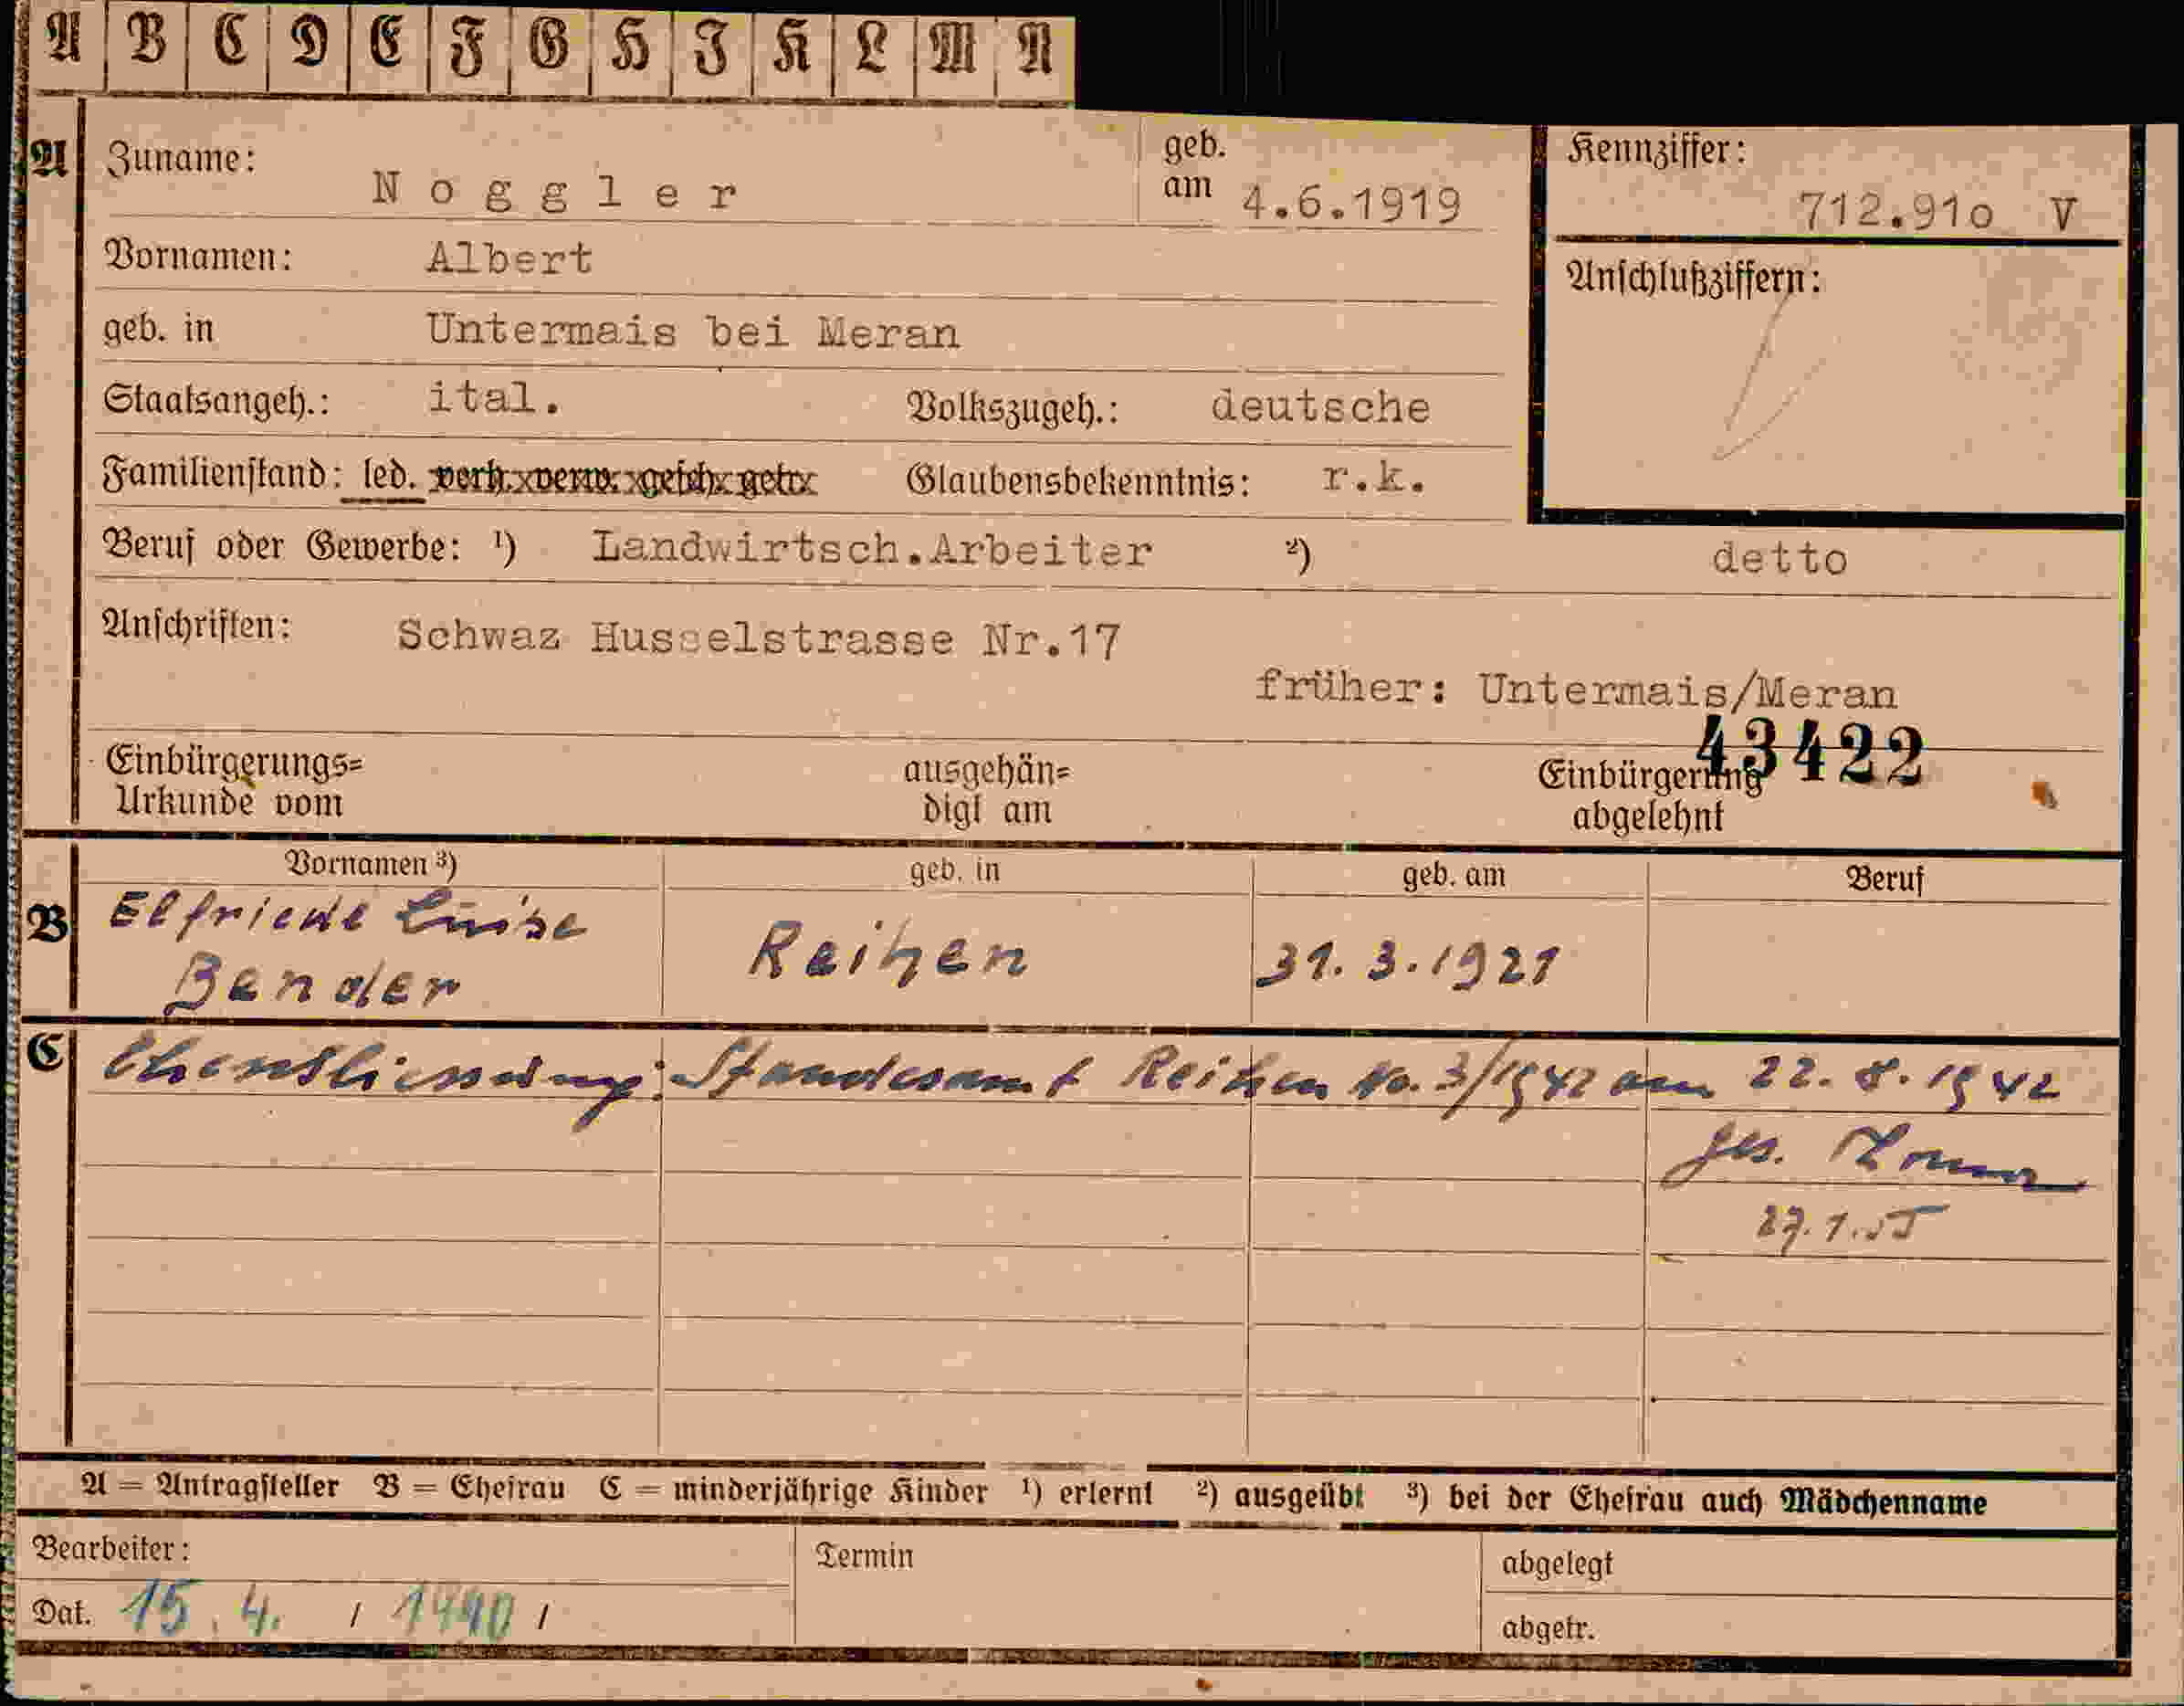 A B C D E F G H J K L M N
A Zuname: Noggler geb. am 4.6.1919 Kennziffer: 712.91o V
Vornamen: Albert Anschlußziffern:
geb. in Untermais bei Meran
Staatsangeh.: ital. Volkszugeh.: deutsche
Familienstand: led. verh. verw. gesch. getr. Glaubensbekenntnis: r.k.
Beruf oder Gewerbe: ¹) Landwirtsch.Arbeiter ²) detto
Anschriften: Schwaz Husselstrasse Nr.17
früher: Untermais/Meran
43422
Einbürgerungs= ausgehän= Einbürgerung
Urkunde vom digt am abgelehnt
Vornamen ³) geb. in geb. am Beruf
B Elfriede Luise
Bender Reihen 31.3.1921
C Eheschliessung: Standesamt Reihen No. 3/1942 am 22.8.1942
ges.
27.1.
A = Antragsteller B = Ehefrau C = minderjährige Kinder ¹) erlernt ²) ausgeübt ³) bei der Ehefrau auch Mädchenname
Bearbeiter: Termin abgelegt
Dat. 15.4. / 1940 / abgetr.